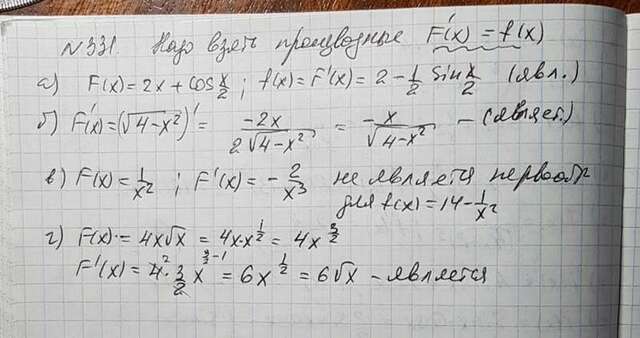 №331. Надо взять производные F'(x) = f(x)
а) F(x) = 2x + cos x/2 ; f(x) = F'(x) = 2 - 1/2 sin x/2 (явл.)
б) F'(x) = (√4-x²)' = -2x / 2√4-x² = -x / √4-x² - (является)
в) F(x) = 1/x² ; F'(x) = - 2/x³ не является первообр
для f(x) = 14 - 1/x²
г) F(x) = 4x√x = 4x·x^1/2 = 4x^3/2
F'(x) = 4² · 3/2 x^3/2-1 = 6x^1/2 = 6√x - является